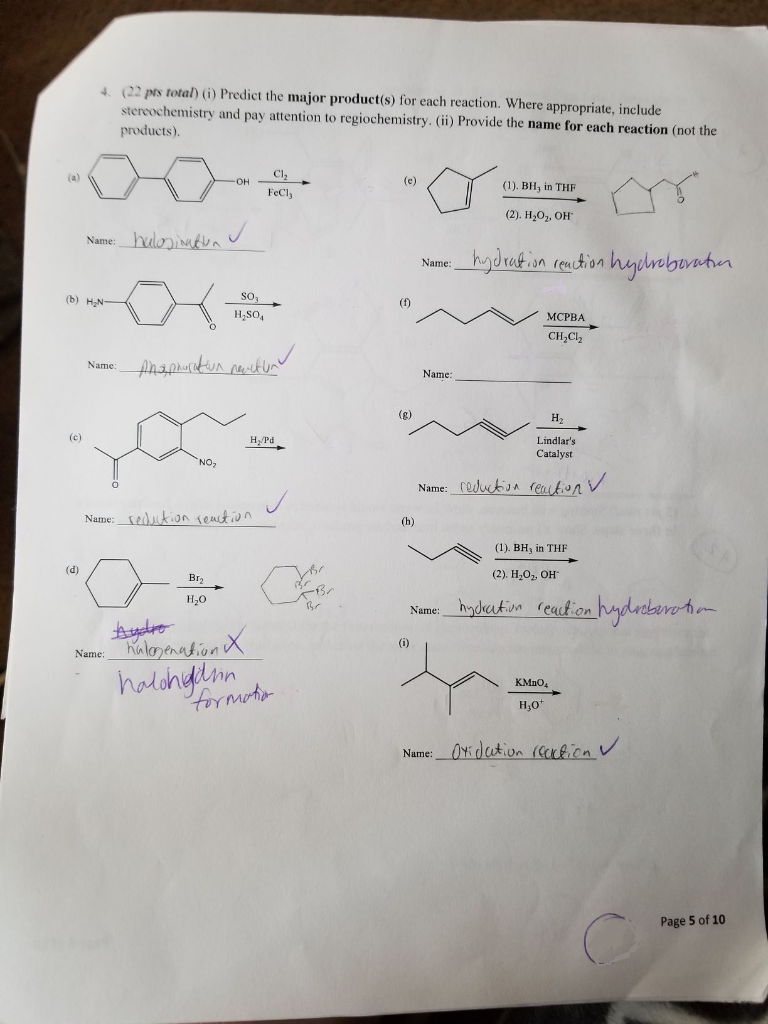 4. (22 pts total) (i) Predict the major product(s) for each reaction. Where appropriate, include
stereochemistry and pay attention to regiochemistry. (ii) Provide the name for each reaction (not the
products).
(a)
OH
Cl2
FeCl3
Name: halogination ✓
(b) H2N
O
SO3
H2SO4
Name: reaction ✓
(c)
O
NO2
H2/Pd
Name: reduction reaction ✓
(d)
Br2
H2O
Br
Br
Br
Br
hydro
Name: halogenation X
halohydrin
formation
(e)
(1). BH3 in THF
(2). H2O2, OH-
O
H
Name: hydration reaction hydroboration
(f)
MCPBA
CH2Cl2
Name:
(g)
H2
Lindlar's
Catalyst
Name: reduction reaction ✓
(h)
(1). BH3 in THF
(2). H2O2, OH-
Name: hydration reaction hydroboration
(i)
KMnO4
H3O+
Name: Oxidation reaction ✓
Page 5 of 10